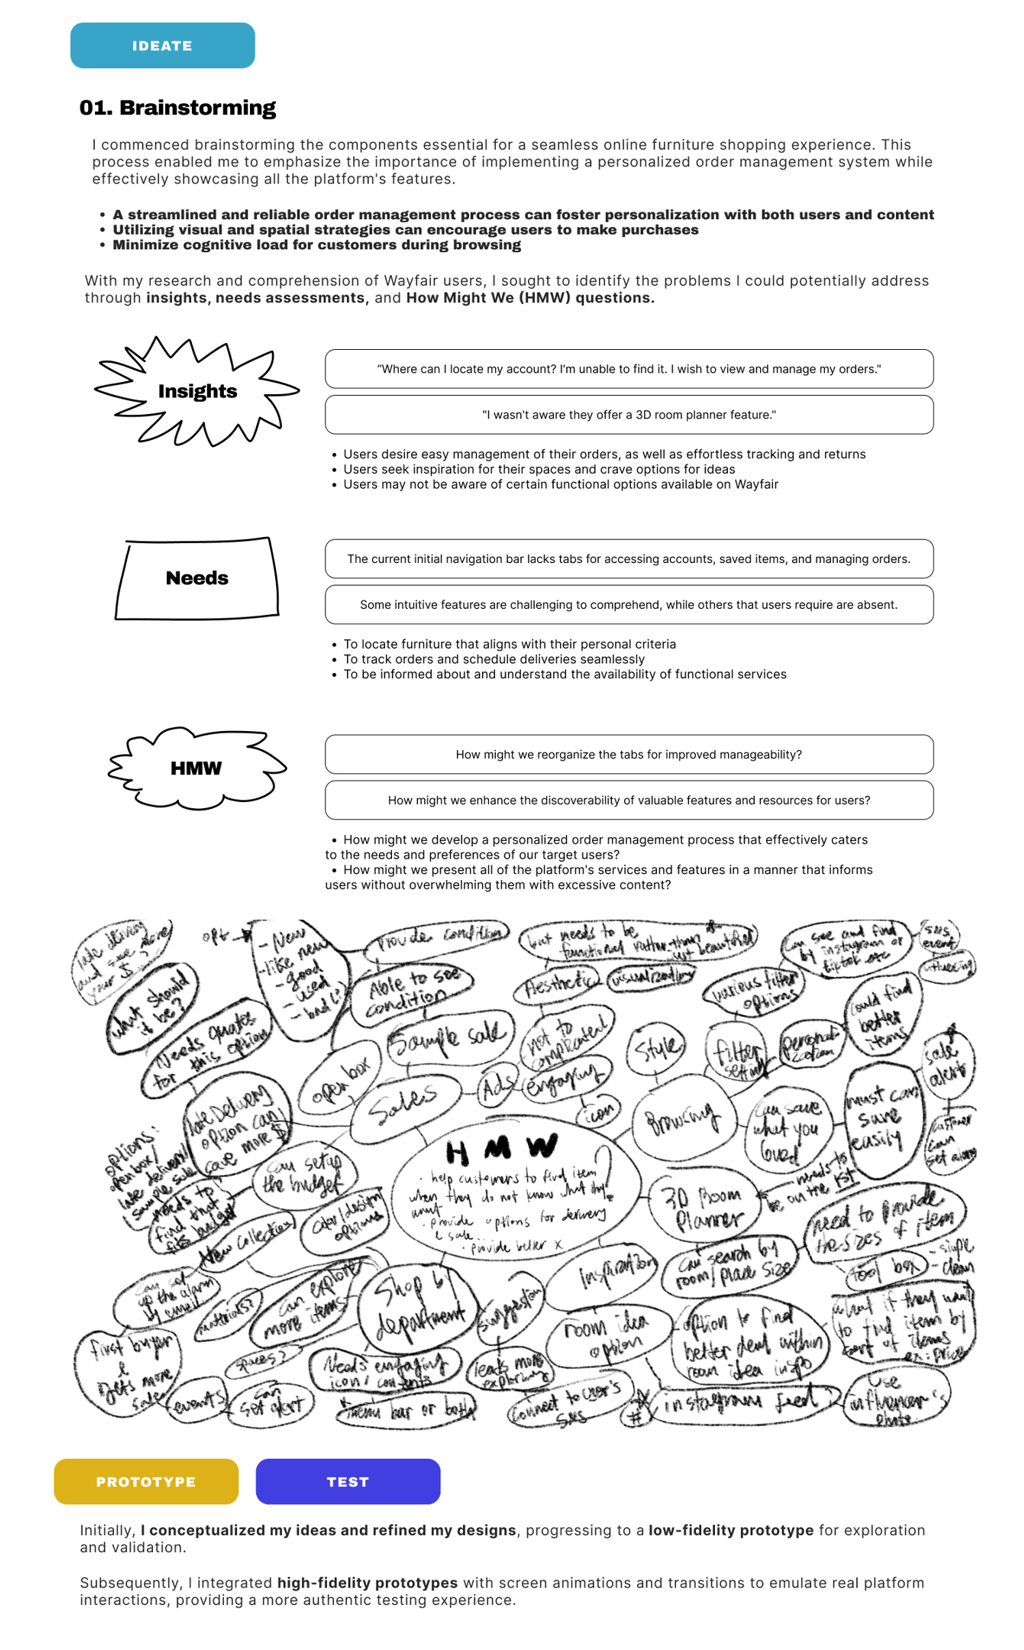 IDEATE
01. Brainstorming
I commenced brainstorming the components essential for a seamless online furniture shopping experience. This
process enabled me to emphasize the importance of implementing a personalized order management system while
effectively showcasing all the platform's features.
• A streamlined and reliable order management process can foster personalization with both users and content
• Utilizing visual and spatial strategies can encourage users to make purchases
• Minimize cognitive load for customers during browsing
With my research and comprehension of Wayfair users, I sought to identify the problems I could potentially address
through insights, needs assessments, and How Might We (HMW) questions.
Insights
"Where can I locate my account? I'm unable to find it. I wish to view and manage my orders."
"I wasn't aware they offer a 3D room planner feature."
• Users desire easy management of their orders, as well as effortless tracking and returns
• Users seek inspiration for their spaces and crave options for ideas
• Users may not be aware of certain functional options available on Wayfair
Needs
The current initial navigation bar lacks tabs for accessing accounts, saved items, and managing orders.
Some intuitive features are challenging to comprehend, while others that users require are absent.
• To locate furniture that aligns with their personal criteria
• To track orders and schedule deliveries seamlessly
• To be informed about and understand the availability of functional services
HMW
How might we reorganize the tabs for improved manageability?
How might we enhance the discoverability of valuable features and resources for users?
• How might we develop a personalized order management process that effectively caters
to the needs and preferences of our target users?
• How might we present all of the platform's services and features in a manner that informs
users without overwhelming them with excessive content?
- New
- like new
- good
- used
- bad (?)
Provide condition
but needs to be
functional rather than
just beautiful
can see and find
by instagram or
tiktok etc
sns
event
What should
it be?
Able to see
condition
Aesthetic
visualization
various filter
options
could find
better
items
Needs quotes
for this option
Sample sale
not to
complicated
Style
filter
setting
sale
alerts
open box
Sales
Ads
engaging
icon
Browsing
can save
what you
loved
must can
save
easily
late Delivery
option can
save more $
customer
can
set alarm
options:
open box/
late delivery/
sample sale
can setup
the budget
HMW
· help customers to find item
when they do not know what they
want
· provide options for delivery
& sale...
· provide better x
3D Room
Planner
needs to
be on the 1st
need to provide
the sizes of item
needs to
find that
fits budget
New collection
color/design
options
Inspiration
can search by
room/place size
tool box
- simple
- clean
can set
up the alarm
by email
materials?
can explore
more items
Shop by
department
suggestion
room idea
option
option to find
better deal within
room idea inspo
what if they want
to find item by
sort of items
ex: price
first buyer
&
gets more
sales
spaces?
Needs engaging
icon/contents
leads more
exploring
events
can
set alert
menu bar or both
connect to user's
sns
#
instagram feed
use
influencer's
photo
PROTOTYPE
TEST
Initially, I conceptualized my ideas and refined my designs, progressing to a low-fidelity prototype for exploration
and validation.
Subsequently, I integrated high-fidelity prototypes with screen animations and transitions to emulate real platform
interactions, providing a more authentic testing experience.